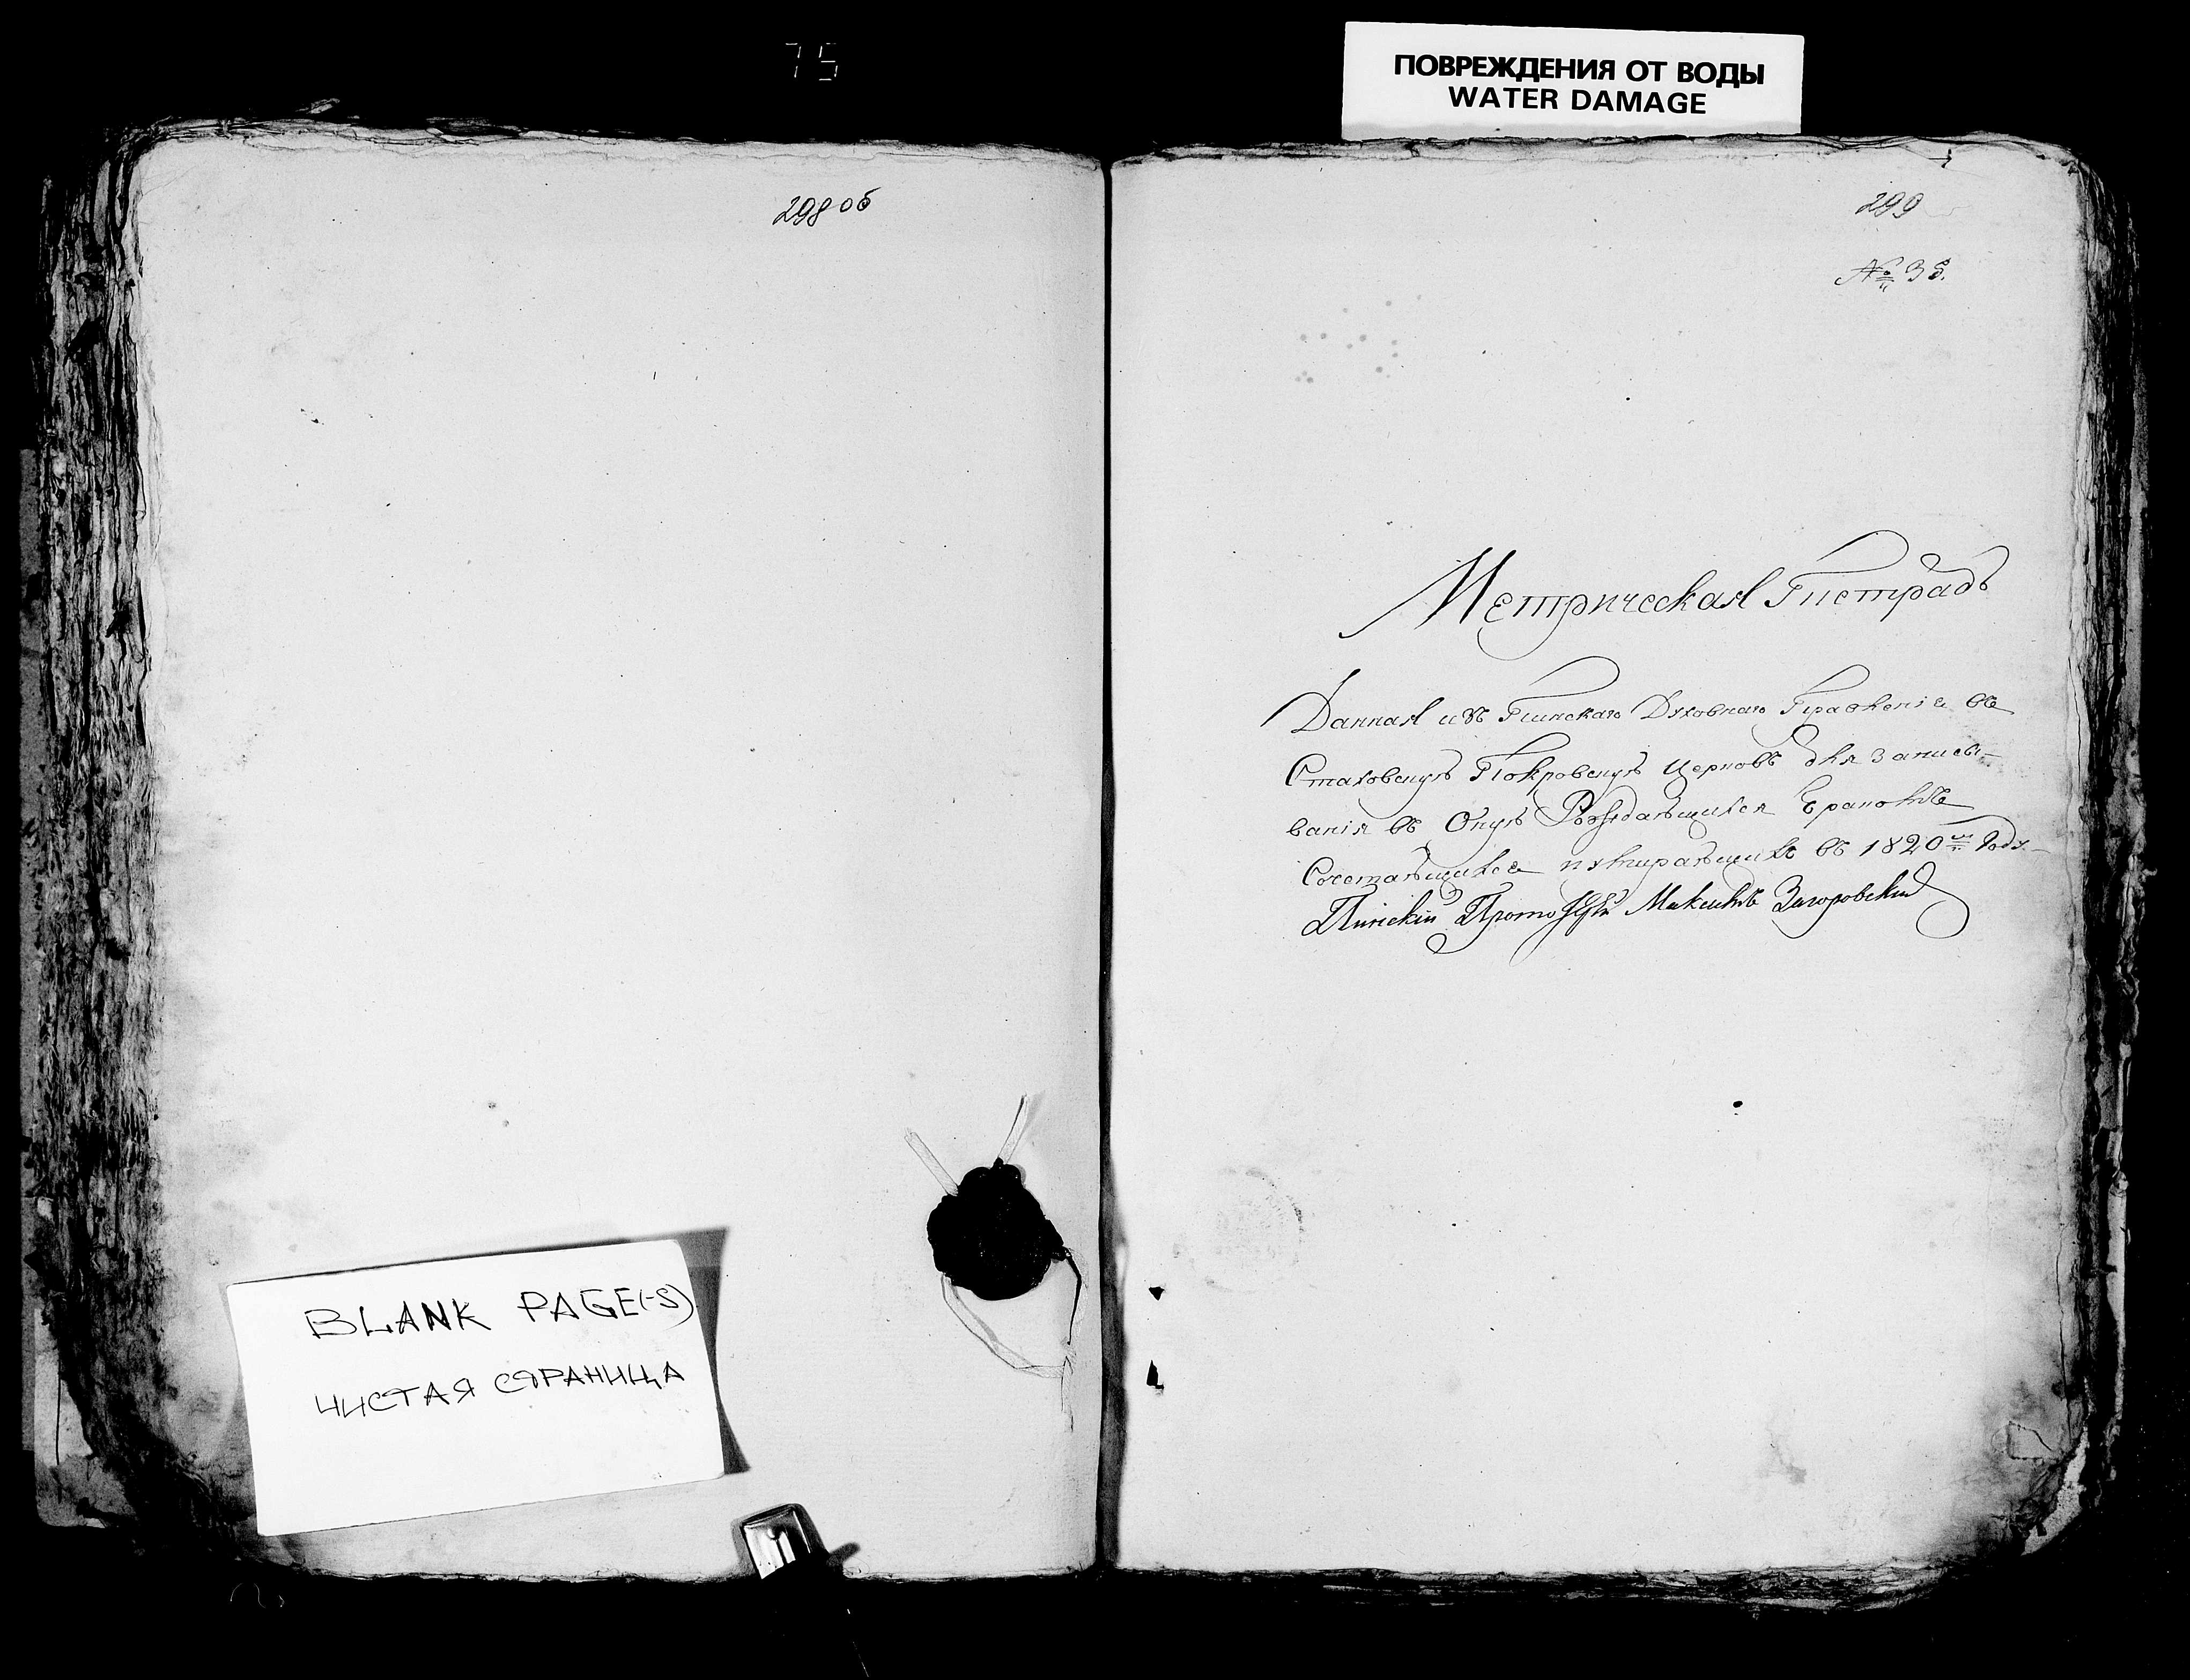 75
ПОВРЕЖДЕНИЯ ОТ ВОДЫ
WATER DAMAGE
298 об
299
№ 35.
Метрическая Тистрадь
Данная изъ Пинскаго Духовнаго Правленія въ
Стаховскую Покровскую Церковь для записы-
ванія въ Оную Рождающихся Бракомъ
Сочетающихся и умирающихъ въ 1820м Году
Пинскій Прото Максимъ Загоровскій
BLANK PAGE(-S)
ЧИСТАЯ СТРАНИЦА